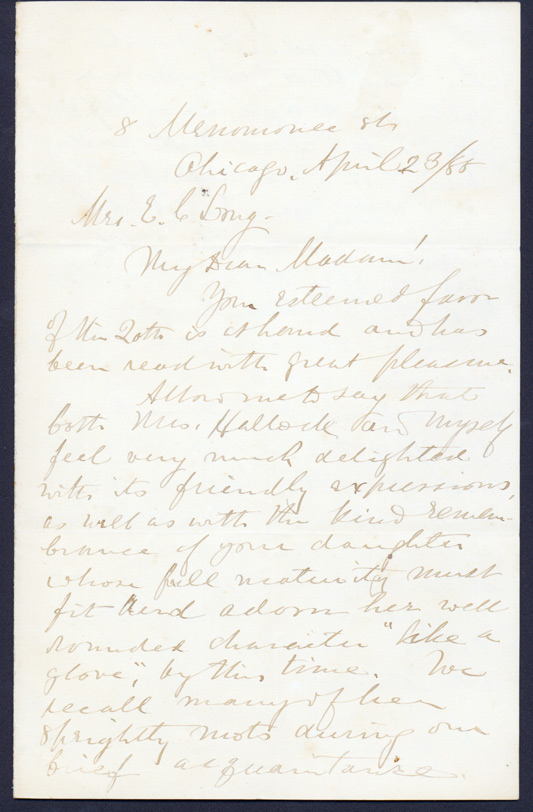 8 Menomonee st
Chicago, April 23/86
Mrs. E. C. Long.
My Dear Madam!
Your esteemed favor
of the 20th is at hand and has
been read with great pleasure.
Allow me to say that
both Mrs. Hallock and myself
feel very much delighted
with its friendly expressions,
as well as with the kind remem-
brance of your daughter
whose full maturity must
fit and adorn her well
rounded character "like a
glove", by this time. We
recall many of her
sprightly mots during our
brief acquaintance.